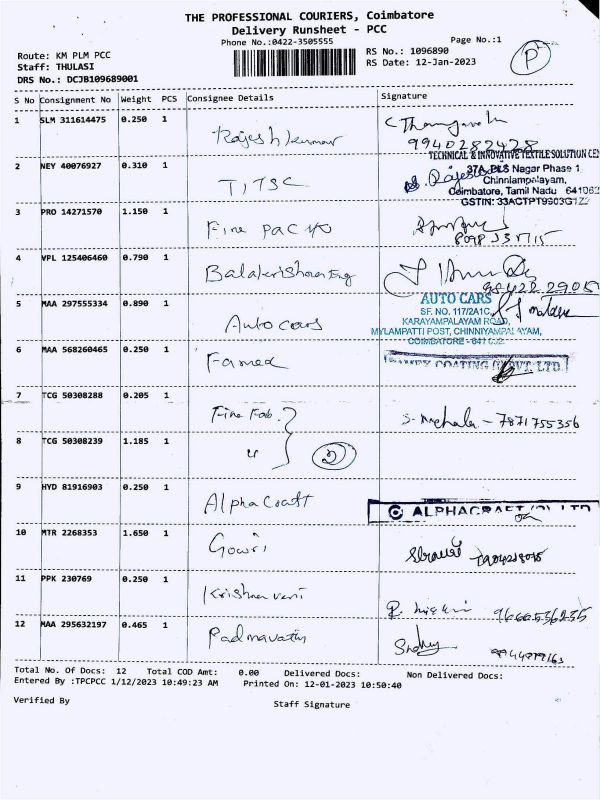 THE PROFESSIONAL COURIERS, Coimbatore
Delivery Runsheet - PCC
Phone No.:0422-3505555
Page No.:1
Route: KM PLM PCC
RS No.: 1096890
P
Staff: THULASI
RS Date: 12-Jan-2023
DRS No.: DCJB109689001
S No Consignment No Weight PCS Consignee Details Signature
1 SLM 311614475 0.250 1 Rajesh kumar
9940282428
TECHNICAL & INNOVATIVE TEXTILE SOLUTION CE
2 NEY 40076927 0.310 1 TITSC
37A, Nagar Phase 1
Chinniampalayam,
Coimbatore, Tamil Nadu 64106
GSTIN: 33ACTPT9903G1Z
3 PRO 14271570 1.150 1 Fine pac
4 VPL 125406460 0.790 1 Balakrishnan Eng
5 MAA 297555334 0.890 1 Auto cars
AUTO CARS
SF. NO. 117/2A1C,
KARAYAMPALAYAM ROAD,
MYLAMPATTI POST, CHINNIYAMPALAYAM,
COIMBATORE - 641
6 MAA 568260465 0.250 1 Famed
COATING PVT. LTD.
7 TCG 50308288 0.205 1 Fine Fab. S. Mehala - 7871755356
8 TCG 50308239 1.185 1 " 2
9 HYD 81916903 0.250 1 Alpha Craft
ALPHACRAFT (P) LTD
10 MTR 2268353 1.650 1 Gowri
11 PPK 230769 0.250 1 Krishnaveni
12 MAA 295632197 0.465 1 Padmavathi
Total No. Of Docs: 12 Total COD Amt: 0.00 Delivered Docs: Non Delivered Docs:
Entered By :TPCPCC 1/12/2023 10:49:23 AM Printed On: 12-01-2023 10:50:40
Verified By
Staff Signature